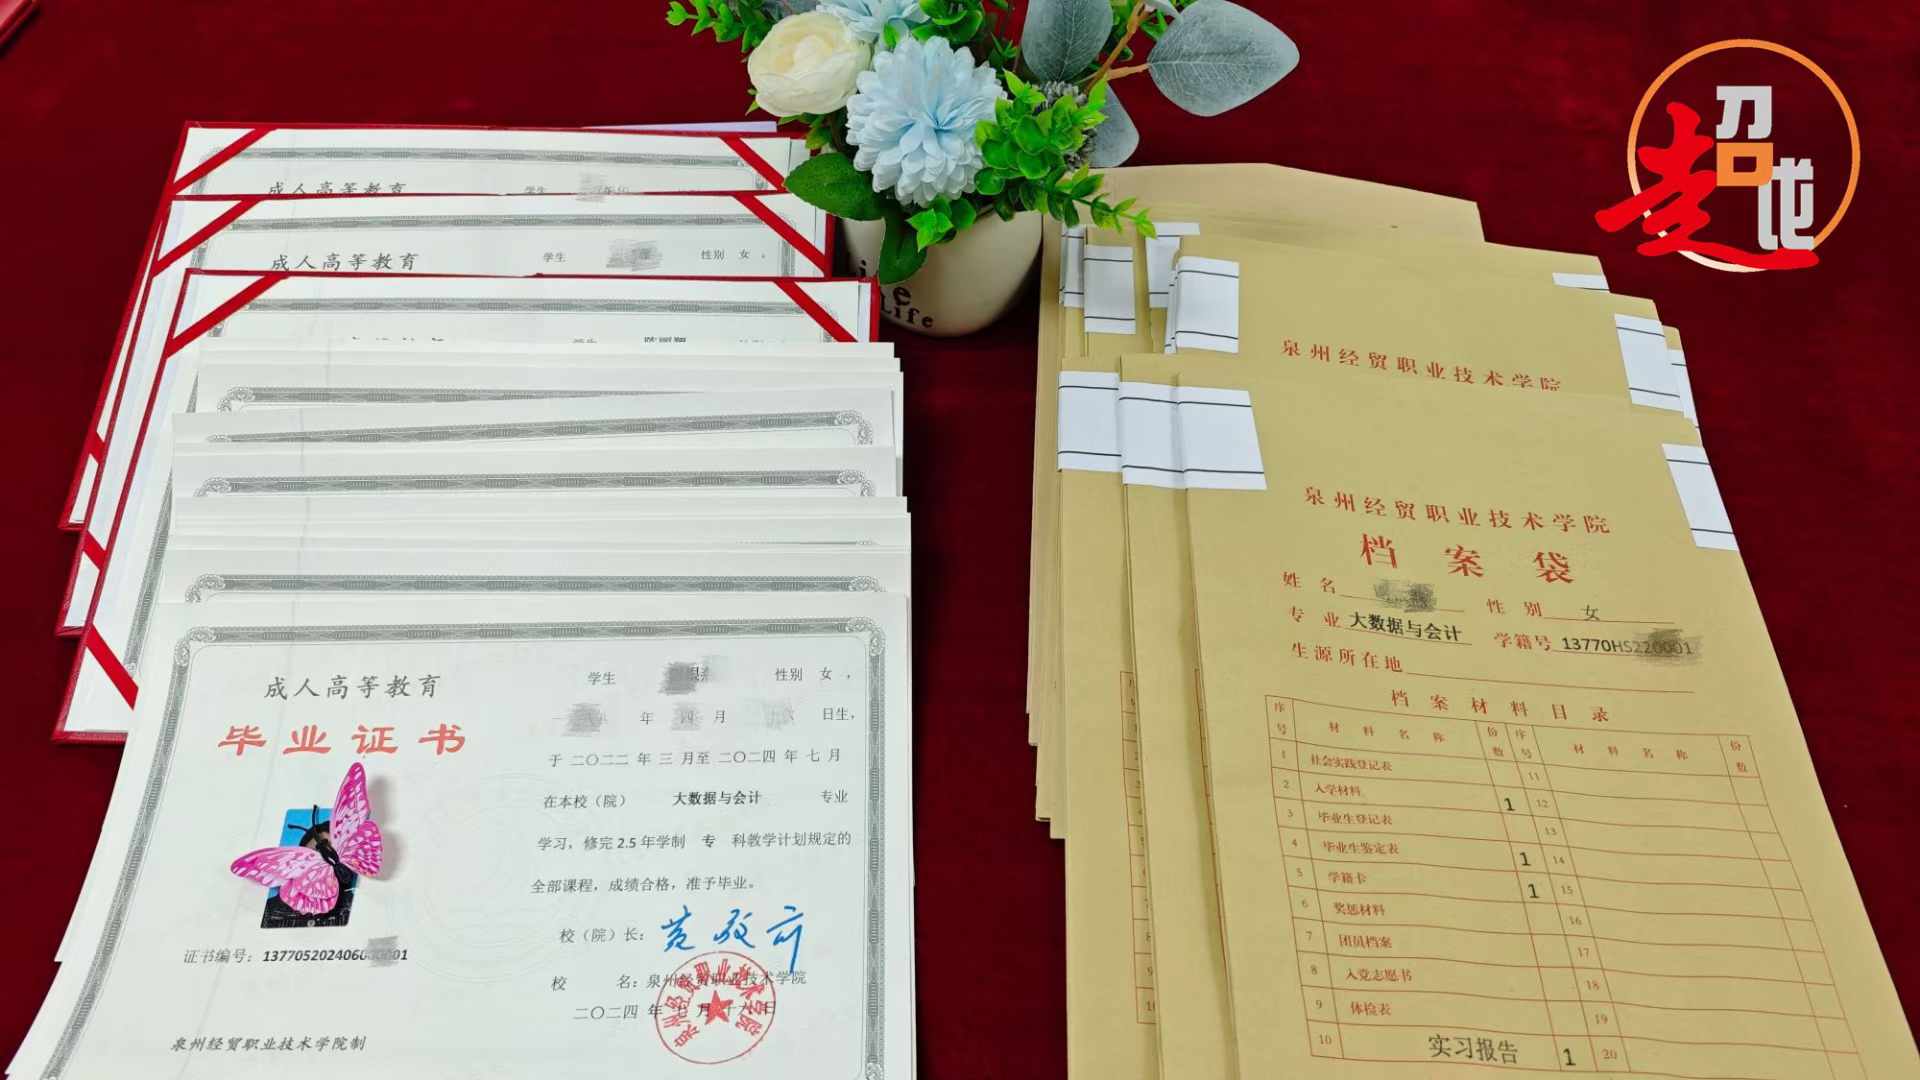 超
龙
成人高等教育
学生
成人高等教育
学生 性别 女 ，
学生
成人高等教育
毕业证书
学生 性别 女 ，
年 四 月 日生，
于 二〇二二 年 三 月至 二〇二四 年 七 月
在本校（院） 大数据与会计 专业
学习，修完 2.5 年学制 专 科教学计划规定的
全部课程，成绩合格，准予毕业。
校（院）长：
校 名：泉州经贸职业技术学院
二〇二四 年 七 月 十六 日
证书编号：
泉州经贸职业技术学院制
Life
泉州经贸职业技术学院
泉州经贸职业技术学院
档案袋
姓名 性别 女
专业 大数据与会计 学籍号 13770HS220001
生源所在地
档案材料目录
序号 材料名称 份数 序号 材料名称 份数
1 社会实践登记表 11
2 入学材料 1 12
3 毕业生登记表 13
4 毕业生鉴定表 1 14
5 学籍卡 1 15
6 奖惩材料 16
7 团员档案 17
8 入党志愿书 18
9 体检表 19
10 实习报告 1 20